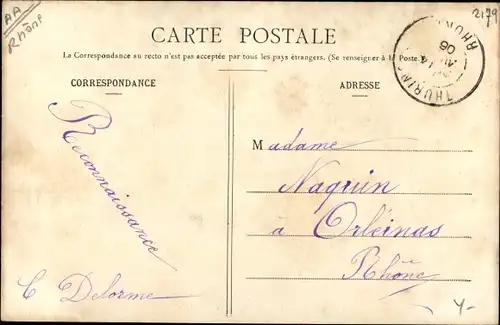 AA
Rhône
2179
CARTE POSTALE
La Correspondance au recto n'est pas acceptée par tous les pays étrangers. (Se renseigner à la Poste.)
CORRESPONDANCE
ADRESSE
THURINS
RHONE
06
Reconnaissance
C Delorme
Madame
Naquin
à Orléinas
Rhône
Y-